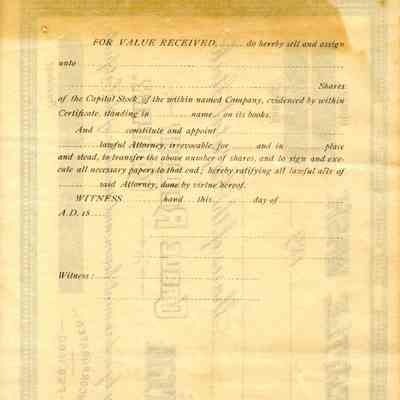 FOR VALUE RECEIVED, ........ do hereby sell and assign
unto
Shares
of the Capital Stock of the within named Company, evidenced by within
Certificate, standing in ........ name on its books.
And ........ constitute and appoint
lawful Attorney, irrevocable, for ........ and in ........ place
and stead, to transfer the above number of shares, and to sign and exe-
cute all necessary papers to that end; hereby ratifying all lawful acts of
........ said Attorney, done by virtue hereof.
WITNESS ........ hand ........ this ........ day of ........
A.D. 18
Witness: